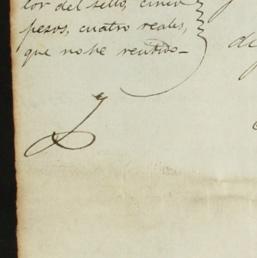 lor del sello, cinco
pesos, cuatro reales,
que no he recibido_
de